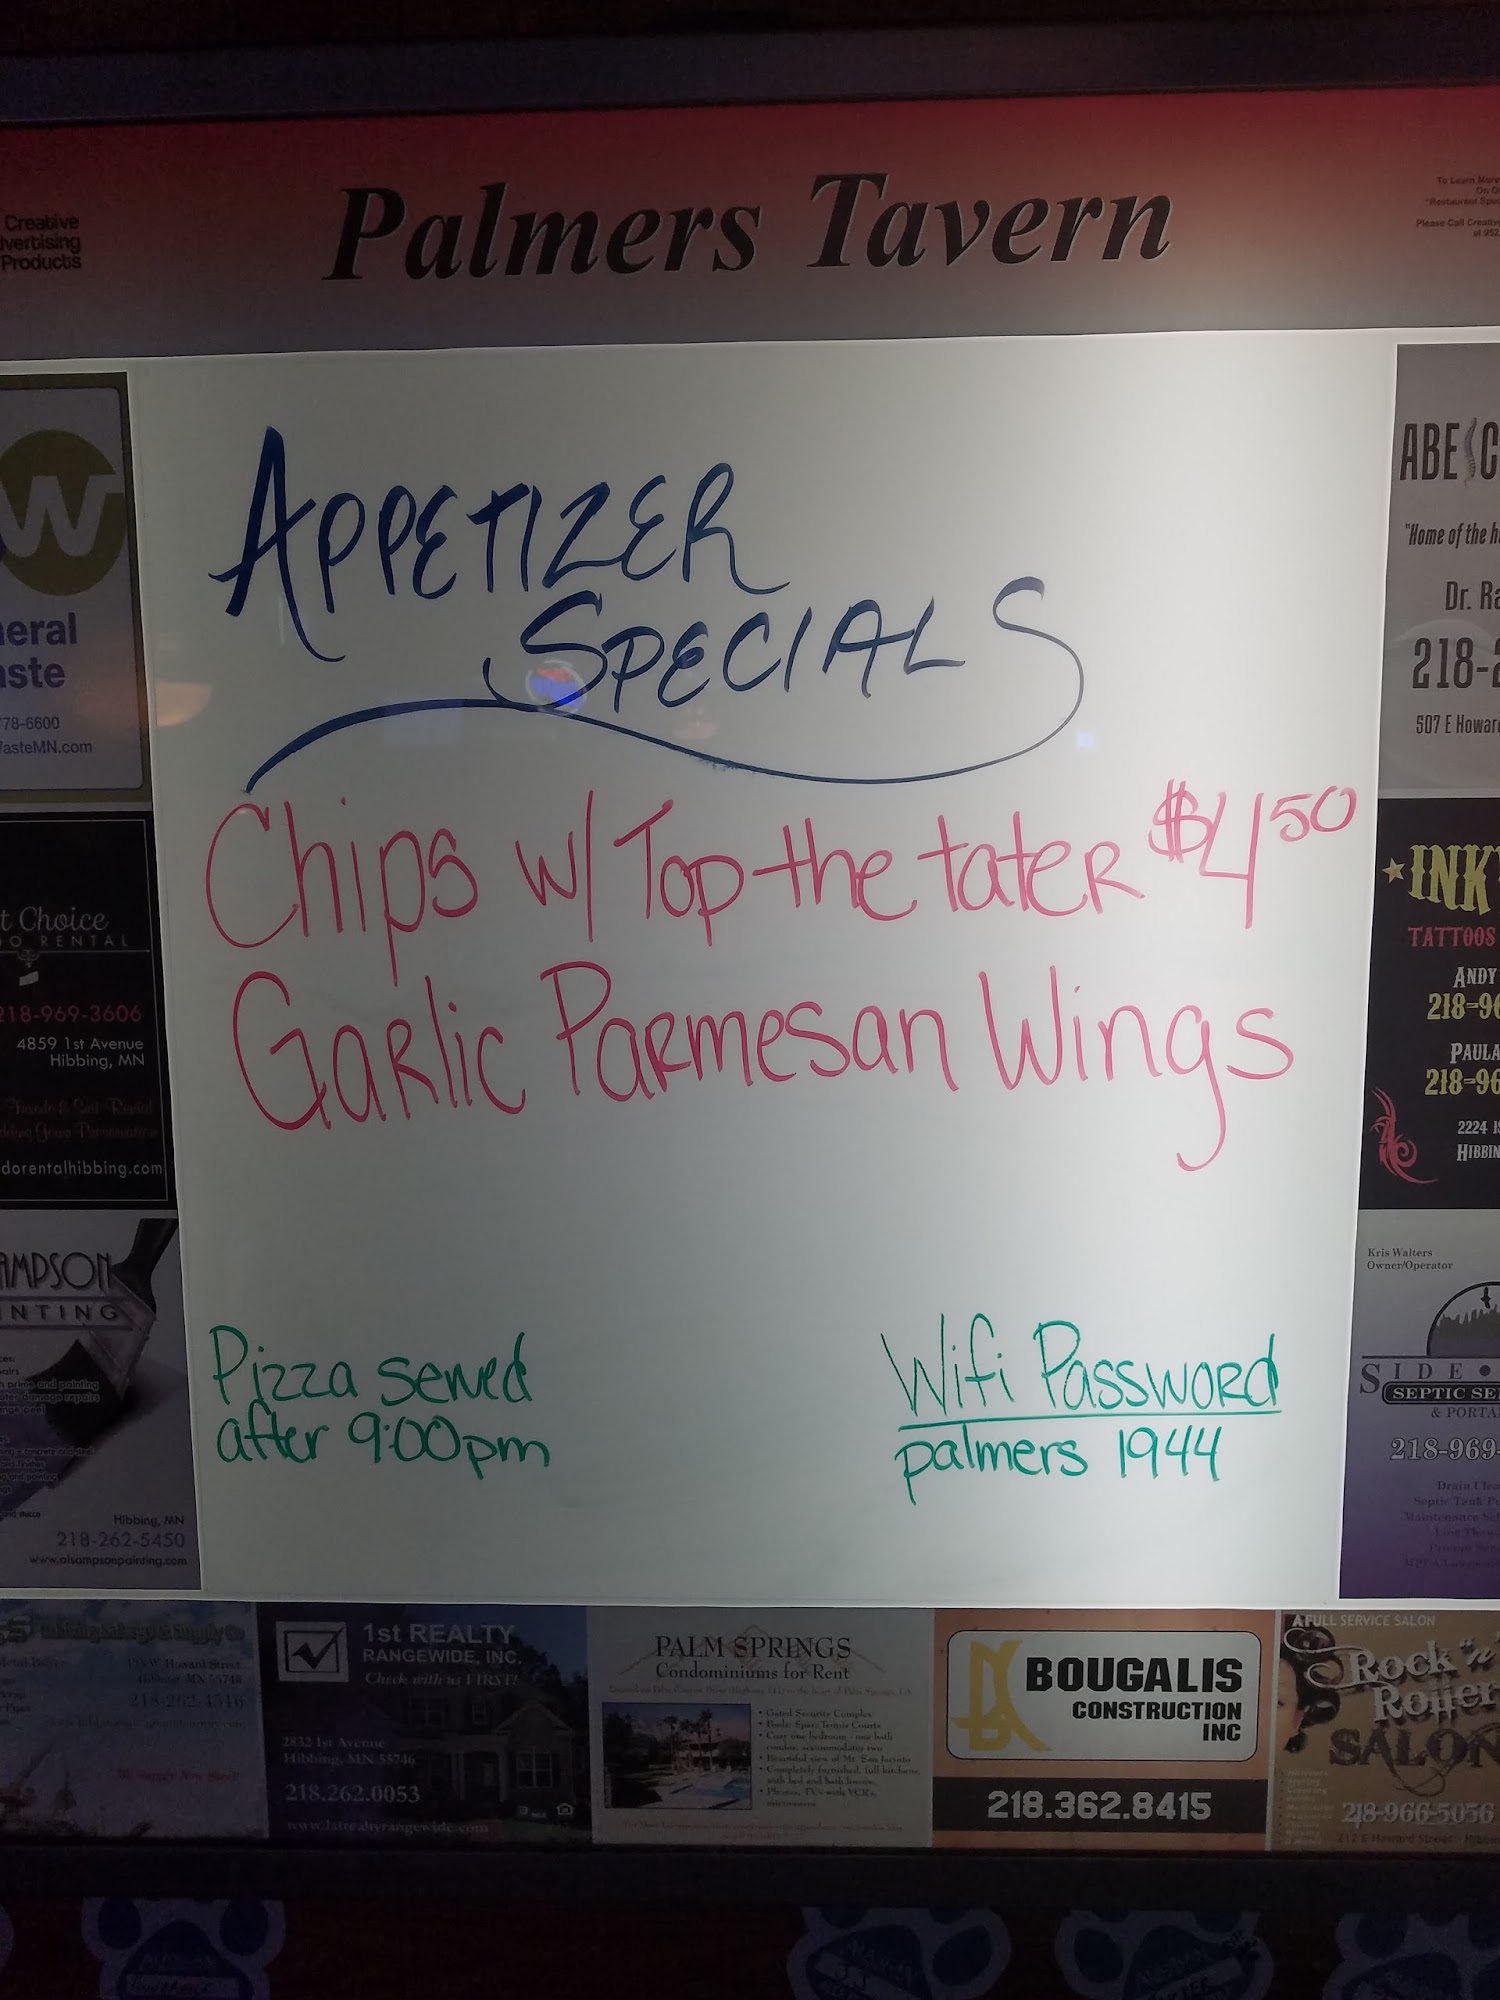 Palmers Tavern
Creative
Advertising
Products
To Learn More
Please Call
APPETIZER
SPECIALS
Chips w/ Top the tater $4.50
Garlic Parmesan Wings
Pizza served
after 9:00pm
Wifi Password
palmers 1944
W
eral
aste
78-6600
asteMN.com
t Choice
O RENTAL
218-969-3606
4859 1st Avenue
Hibbing, MN
dorentalhibbing.com
AMPSON
NTING
Hibbing, MN
218-262-5450
www.alsampsonpainting.com
ABE
"Home of the
Dr. Ra
218-2
507 E Howar
INK
TATTOOS
ANDY
218-96
PAULA
218-96
2224
HIBBIN
Kris Walters
Owner/Operator
SIDE
SEPTIC SE
& PORTA
218-969-
1st REALTY
RANGEWIDE, INC.
Check with us FIRST!
2832 1st Avenue
Hibbing, MN 55746
218.262.0053
www.1strealtyrangewide.com
PALM SPRINGS
Condominiums for Rent
• Gated Security Complex
BOUGALIS
CONSTRUCTION
INC
218.362.8415
A FULL SERVICE SALON
Rock "n"
Roller
SALON
218-966-5056